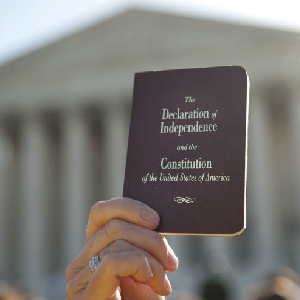 The
Declaration of
Independence
and the
Constitution
of the United States of America